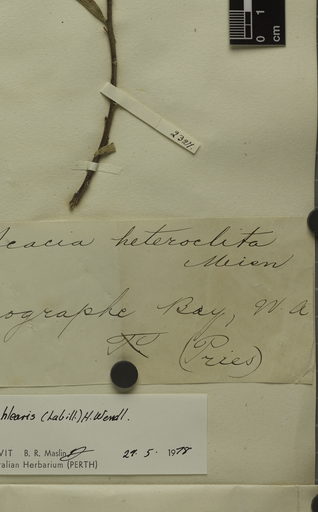 0 1
cm
2381.
Acacia heteroclita
Meisn
ographe Bay, W. A
(Preiss)
hlearis (Labill.) H. Wendl.
VIT B. R. Maslin
29. 5. 1978
alian Herbarium (PERTH)